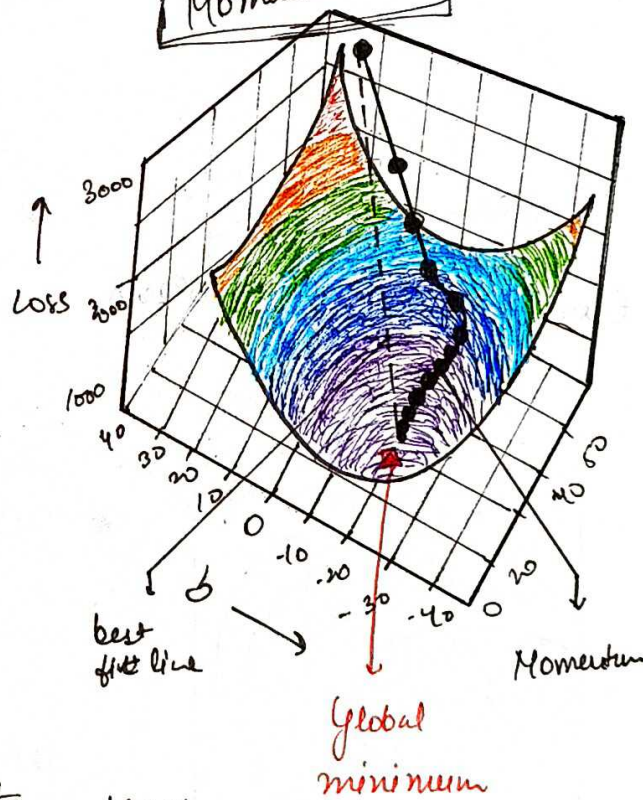 3000
Loss
2000
1000
40
30
20
10
0
-10
-20
-30
-40
0
20
40
60
b
best
fitt line
Momentum
Global
minimum